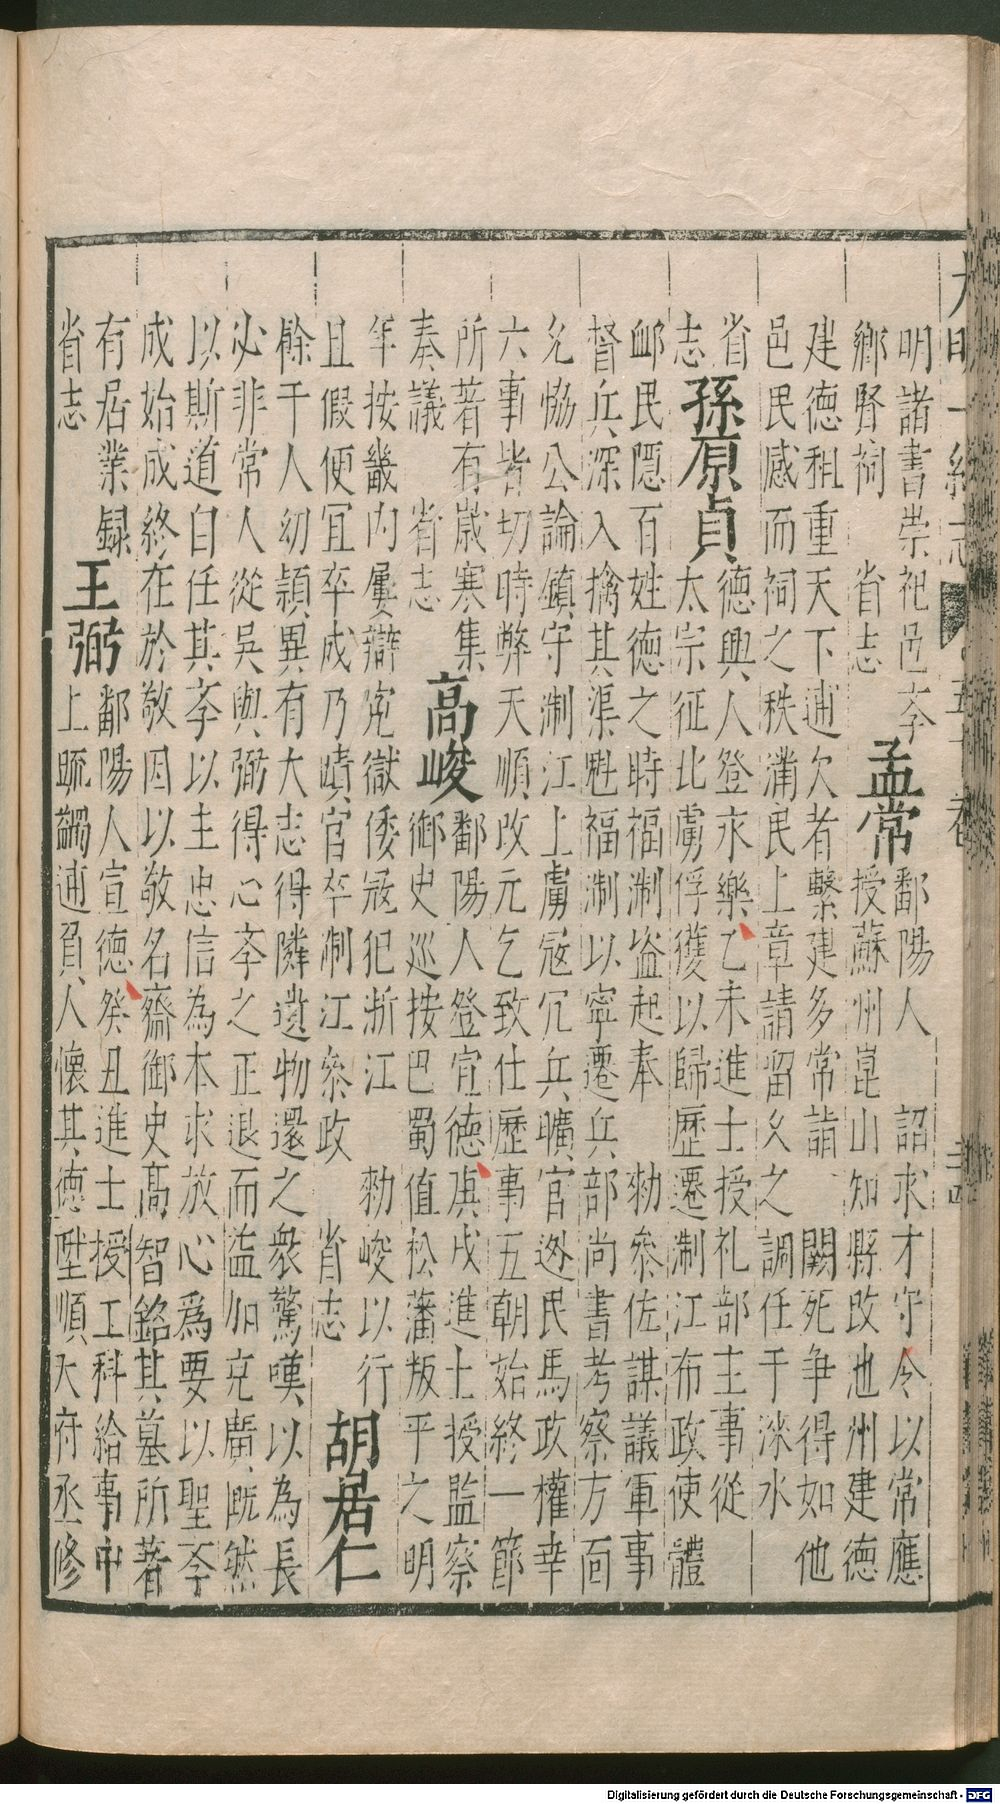 明諸書崇祀邑孝
鄉賢祠 省志 孟常 鄱陽人 詔求才守令以常應
授蘇州崑山知縣改池州建德
建德租重天下逋欠者繫建多常詣 闕死爭得如他
邑民感而祠之秩滿民上章請留乂之 調任于淶水
省志 孫原貞 德興人登永樂乙未進士授礼部主事從
太宗征北虜俘獲以歸歷遷淛江布政使體
邺民隱百姓德之時福淛盗起奉 勑叅佐謀議軍事
督兵深入擒其渠魁福淛以寧遷兵部尚書考察方面
允恊公論鎮守淛江上虜寇冗兵曠官遝民馬政權幸
六事皆切時弊天順改元乞致仕歷事五朝始終一節
所著有歲寒集
奏議 省志 高峻 鄱陽人登宣德庚戌進士授監察
御史巡按巴蜀值松藩叛平之明
年按畿内屢辯寃獄倭寇犯浙江 勑峻以行
且假便宜卒成乃蹟官卒淛江叅政 省志 胡居仁
餘干人幼穎異有大志得隣遺物還之衆驚嘆以為長
必非常人從吳與弼得心孝之正退而益加充廣既然
以斯道自任其孝以主忠信為本求放心爲要以聖孝
成始成終在於敬因以敬名齋御史髙智銘其墓所著
有居業録
省志 王弼 鄱陽人宣德癸丑進士授工科給事中
上䟽蠲逋負人懷其德陞順天府丞修
大明一統志 五十卷 二十四
Digitalisierung gefördert durch die Deutsche Forschungsgemeinschaft - DFG